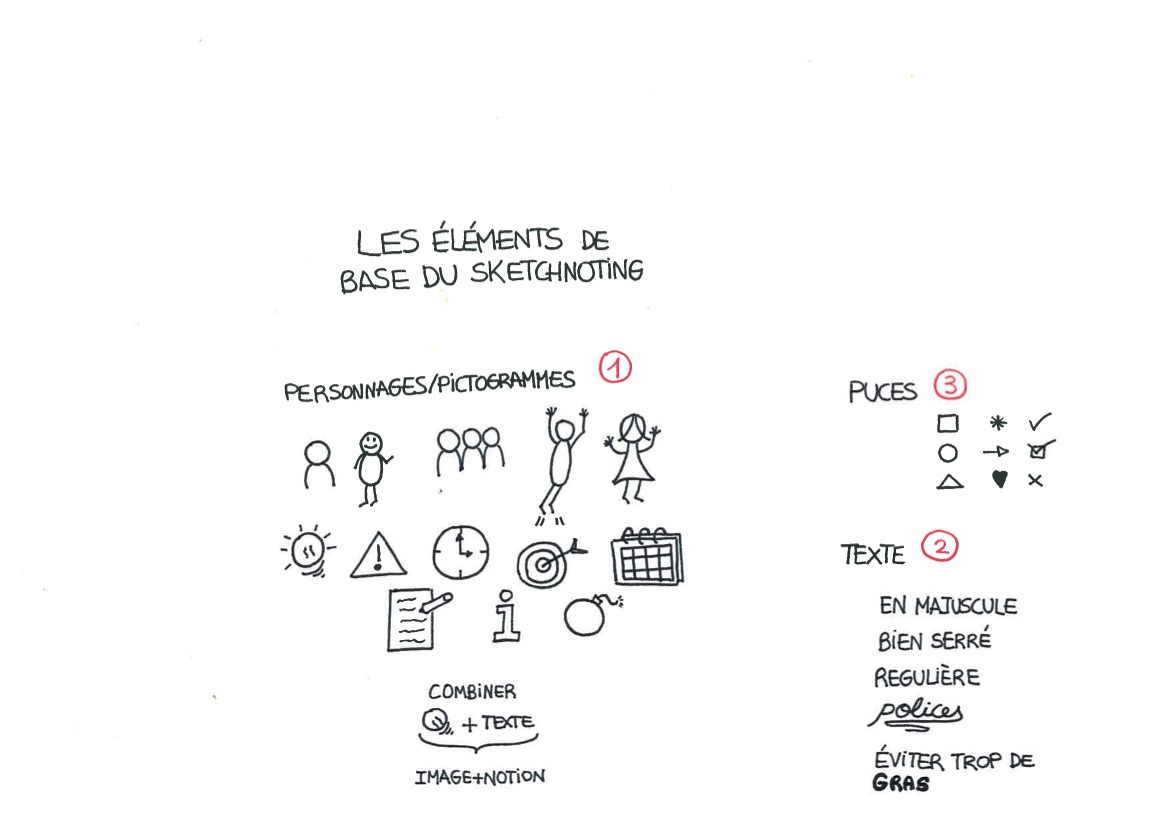 LES ÉLÉMENTS DE
BASE DU SKETCHNOTING
PERSONNAGES/PICTOGRAMMES 1
COMBINER
+ TEXTE
IMAGE+NOTION
PUCES 3
TEXTE 2
EN MAJUSCULE
BIEN SERRÉ
REGULIÈRE
polices
ÉVITER TROP DE
GRAS